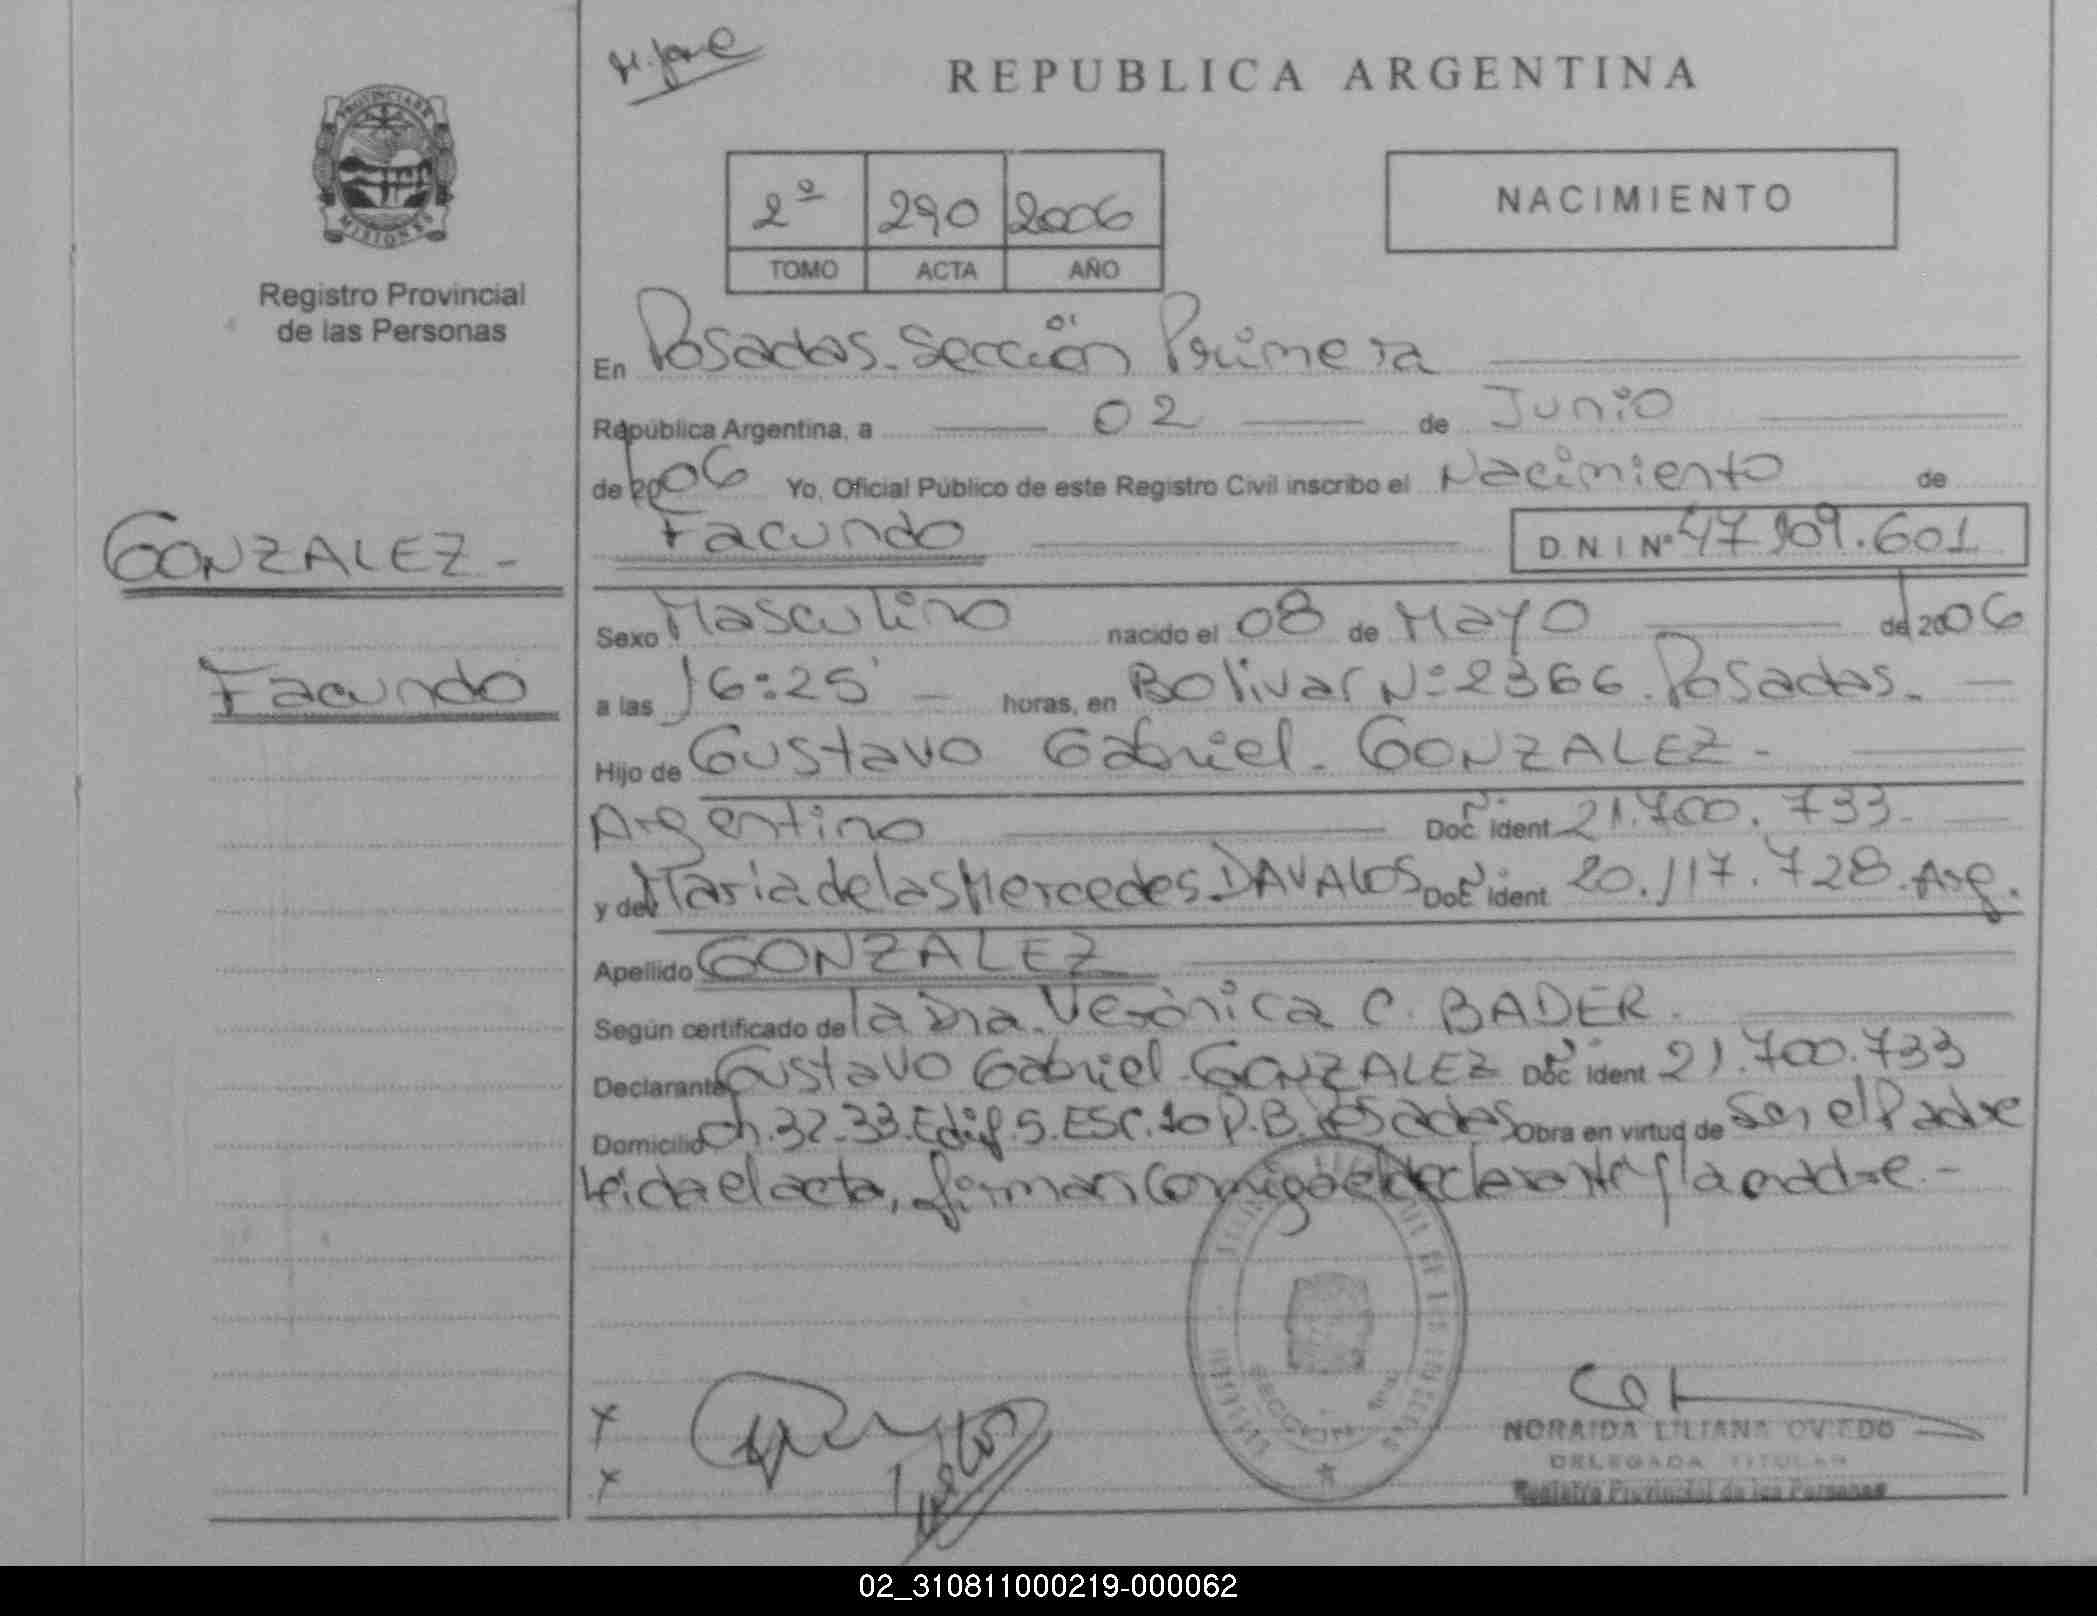 M. José
REPUBLICA ARGENTINA
PROVINCIA DE
MISIONES
Registro Provincial
de las Personas
2º 290 2006
TOMO ACTA AÑO
NACIMIENTO
En Posadas. Sección Primera
República Argentina, a 02 de Junio
de 2006 Yo, Oficial Público de este Registro Civil inscribo el Nacimiento de
Facundo
D N I Nº 47.109.601
GONZALEZ -
Facundo
Sexo Masculino nacido el 08 de Mayo de 2006
a las 16:25' horas, en Bolivar Nº 2366. Posadas.
Hijo de Gustavo Gabriel. GONZALEZ -
Argentino Doc. Ident 21.700.733.
y de Maria de las Mercedes. DAVALOS Doc. Ident 20.117.728. Arg.
Apellido GONZALEZ
Según certificado de la Dra. Verónica C. BADER.
Declarante Gustavo Gabriel. GONZALEZ Doc. Ident 21.700.733
Domicilio Ch. 32-33. Edif. 5. ESC. 10 P.B. Posadas Obra en virtud de Ser el Padre
Leida el acta, firman conmigo el declarante y la madre. -
NORAIDA LILIANA OVIEDO
DELEGADA TITULAR
Registro Provincial de las Personas
02_310811000219-000062